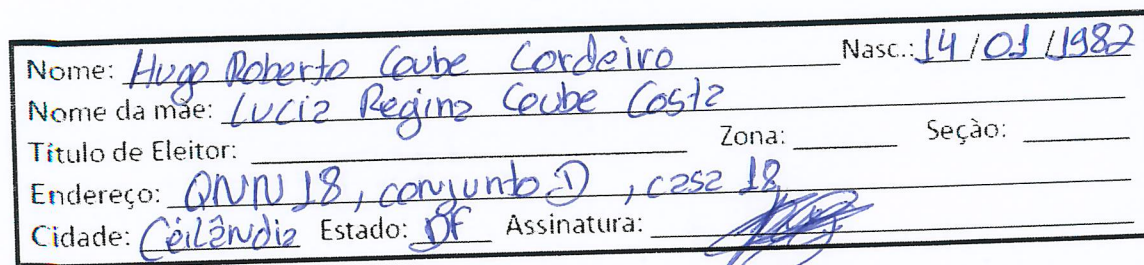 Nome: Hugo Roberto Coube Cordeiro Nasc.: 14/01/1982
Nome da mãe: Lucia Regina Coube Costa
Título de Eleitor: Zona: Seção:
Endereço: QNN 18, conjunto D, casa 18
Cidade: Ceilândia Estado: DF Assinatura: